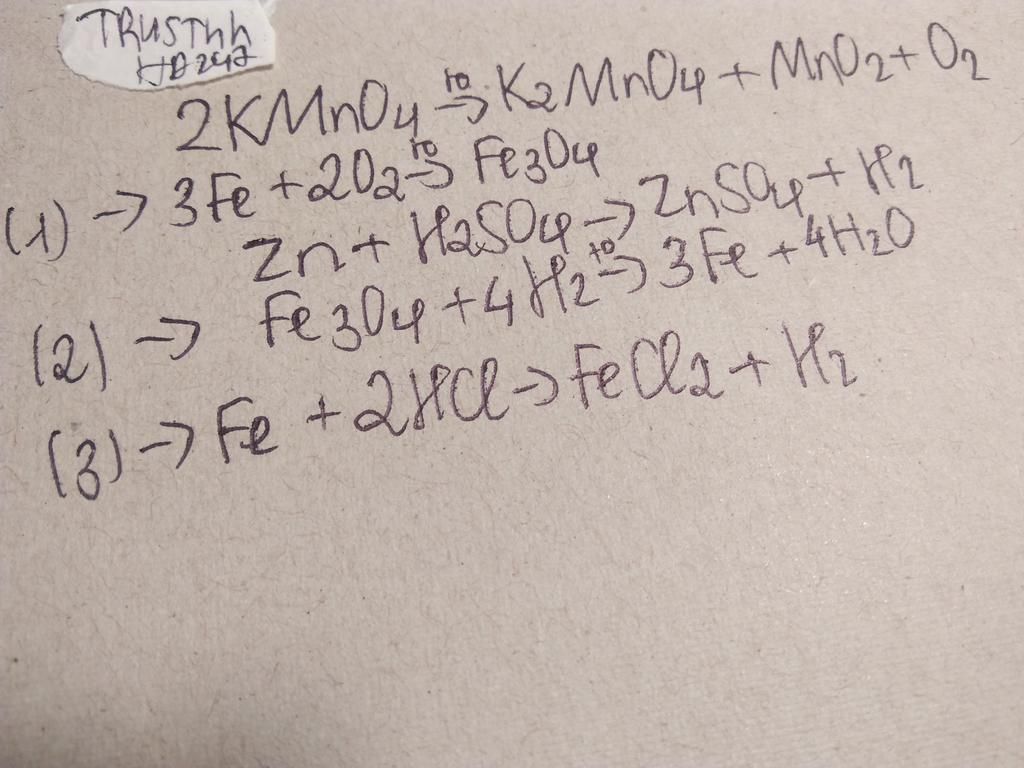 TRUSTnh
HD247
2KMnO4 t0→ K2MnO4 + MnO2 + O2
(1) → 3Fe + 2O2 t0→ Fe3O4
Zn + H2SO4 → ZnSO4 + H2
(2) → Fe3O4 + 4H2 t0→ 3Fe + 4H2O
(3) → Fe + 2HCl → FeCl2 + H2